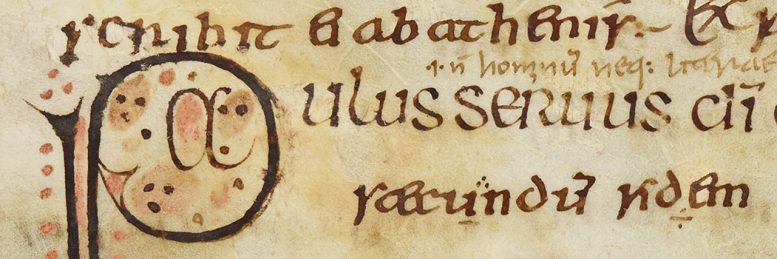 scribit ei ab athenis
.i. n̄ hominū neq:
Paulus seruus dī
secundū fidem